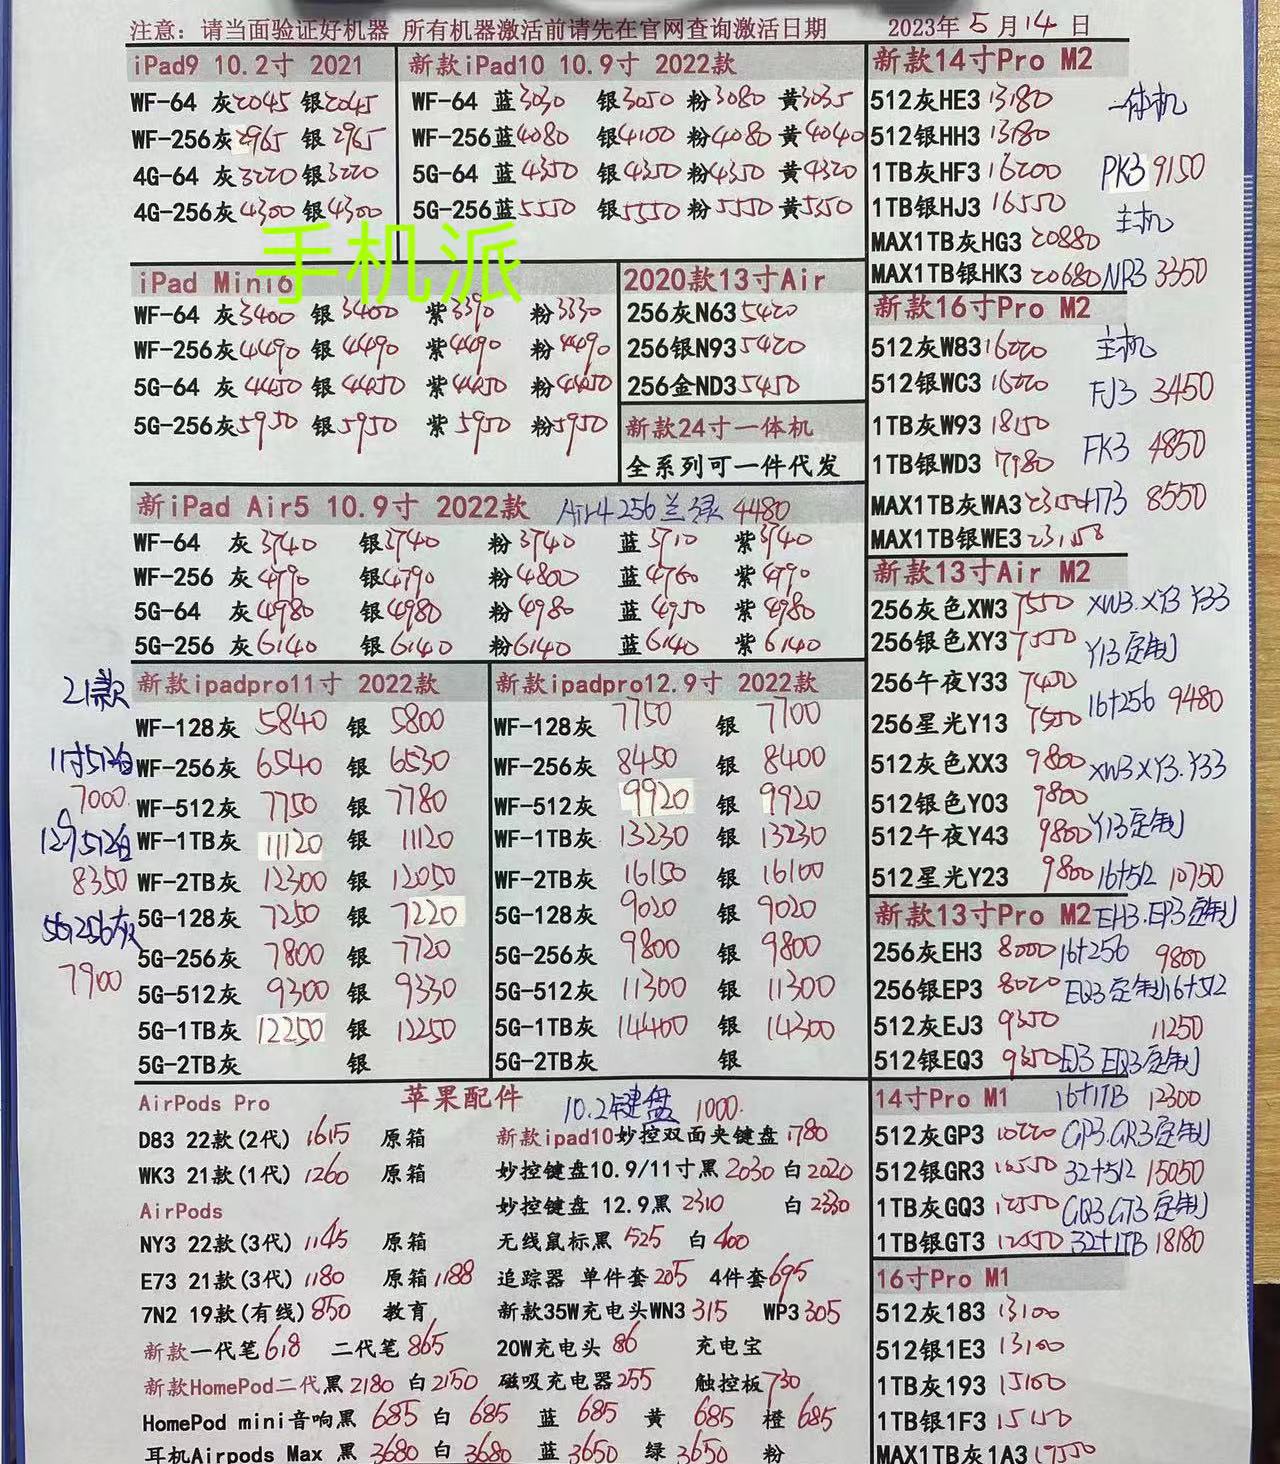 注意：请当面验证好机器 所有机器激活前请先在官网查询激活日期 2023年5月14日
iPad9 10.2寸 2021
WF-64 灰2045 银2045
WF-256灰2965 银2965
4G-64 灰3220 银3220
4G-256灰4300 银4300
新款iPad10 10.9寸 2022款
WF-64 蓝3030 银3050 粉3080 黄3035
WF-256蓝4080 银4100 粉4080 黄4040
5G-64 蓝4350 银4350 粉4350 黄4320
5G-256蓝5550 银5550 粉5550 黄5550
手机派
iPad Mini6
WF-64 灰3400 银3400 紫3390 粉3330
WF-256灰4490 银4490 紫4490 粉4490
5G-64 灰4450 银4450 紫4450 粉4450
5G-256灰5950 银5950 紫5950 粉5950
2020款13寸Air
256灰N63 5420
256银N93 5420
256金ND3 5450
新款24寸一体机
全系列可一件代发
新iPad Air5 10.9寸 2022款 Air4 256兰绿 4480
WF-64 灰3740 银3740 粉3740 蓝3710 紫3740
WF-256 灰4790 银4790 粉4800 蓝4760 紫4790
5G-64 灰4980 银4980 粉4980 蓝4950 紫4980
5G-256 灰6140 银6140 粉6140 蓝6140 紫6140
21款
11寸512白
7000
12.9 512白
8350
5G256灰
7900
新款ipadpro11寸 2022款
WF-128灰 5840 银 5800
WF-256灰 6540 银 6530
WF-512灰 7750 银 7780
WF-1TB灰 11120 银 11120
WF-2TB灰 12300 银 12050
5G-128灰 7250 银 7220
5G-256灰 7800 银 7720
5G-512灰 9300 银 9330
5G-1TB灰 12250 银 12250
5G-2TB灰 银
新款ipadpro12.9寸 2022款
WF-128灰 7750 银 7700
WF-256灰 8450 银 8400
WF-512灰 9920 银 9920
WF-1TB灰 13230 银 13230
WF-2TB灰 16150 银 16100
5G-128灰 9020 银 9020
5G-256灰 9800 银 9800
5G-512灰 11300 银 11300
5G-1TB灰 14400 银 14300
5G-2TB灰 银
苹果配件 10.2键盘 1000
AirPods Pro
D83 22款(2代) 1615 原箱
WK3 21款(1代) 1260 原箱
AirPods
NY3 22款(3代) 1145 原箱
E73 21款(3代) 1180 原箱1188
7N2 19款(有线) 850 教育
新款一代笔618 二代笔865
新款HomePod二代黑2180 白2150
HomePod mini音响黑 685 白 685 蓝 685 黄 685 橙 685
耳机Airpods Max 黑 3680 白 3680 蓝 3650 绿 3650 粉
新款ipad10妙控双面夹键盘 1780
妙控键盘10.9/11寸黑2030 白2020
妙控键盘 12.9黑 2310 白2330
无线鼠标黑 525 白 400
追踪器 单件套205 4件套695
新款35W充电头WN3 315 WP3 305
20W充电头 86 充电宝
磁吸充电器255 触控板730
新款14寸Pro M2
512灰HE3 13180
512银HH3 13180
1TB灰HF3 16200
1TB银HJ3 16550
MAX1TB灰HG3 20880
MAX1TB银HK3 20680
一体机
PK3 9150
主机
NR3 3350
新款16寸Pro M2
512灰W83 16220
512银WC3 16220
1TB灰W93 18150
1TB银WD3 17980
MAX1TB灰WA3
MAX1TB银WE3
主机
FJ3 3450
FK3 4850
8550
新款13寸Air M2
256灰色XW3 7550 XW3.XY3 Y33
256银色XY3 7550 Y13定制
256午夜Y33 7450 16+256 9480
256星光Y13 7550
512灰色XX3 9800 XW3 XY3.Y33
512银色Y03 9800
512午夜Y43 9800 Y13定制
512星光Y23 9800 16+512 10750
新款13寸Pro M2 EH3.EP3定制
256灰EH3 8000 16+256 9800
256银EP3 8020 EQ3定制16+512
512灰EJ3 9350 11250
512银EQ3 9350 EJ3 EQ3定制
14寸Pro M1 16+1TB 12300
512灰GP3 10220 GP3.GR3定制
512银GR3 10550 32+512 15050
1TB灰GQ3 12550 GQ3.GT3定制
1TB银GT3 12550 32+1TB 18180
16寸Pro M1
512灰183 13100
512银1E3 13100
1TB灰193 15100
1TB银1F3 15150
MAX1TB灰1A3 19550